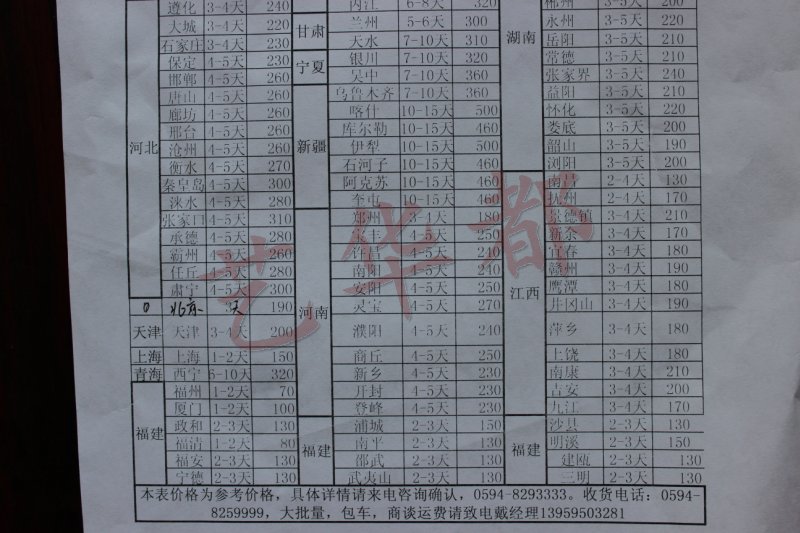 遵化 3-4天 240
大城 3-4天 220
石家庄 3-4天 230
保定 4-5天 230
邯郸 4-5天 260
唐山 4-5天 260
廊坊 4-5天 260
邢台 4-5天 260
河北
沧州 4-5天 260
衡水 4-5天 270
秦皇岛 4-5天 300
涞水 4-5天 280
张家口 4-5天 310
承德 4-5天 280
霸州 4-5天 260
任丘 4-5天 280
肃宁 4-5天 300
北京 3天 190
天津 天津 3-4天 200
上海 上海 1-2天 150
青海 西宁 6-10天 320
福州 1-2天 70
厦门 1-2天 100
福建
政和 2-3天 130
福清 1-2天 80
福安 2-3天 130
宁德 2-3天 130
内江 6-8天 320
甘肃
兰州 5-6天 300
天水 7-10天 310
宁夏
银川 7-10天 320
吴中 7-10天 360
乌鲁木齐 7-10天 360
喀什 10-15天 500
库尔勒 10-15天 460
新疆
伊犁 10-15天 500
石河子 10-15天 460
阿克苏 10-15天 460
奎屯 10-15天 460
郑州 3-4天 180
宝丰 4-5天 250
许昌 4-5天 240
南阳 4-5天 240
安阳 4-5天 250
河南
灵宝 4-5天 270
濮阳 4-5天 240
商丘 4-5天 250
新乡 4-5天 230
开封 4-5天 230
登峰 4-5天 230
福建
浦城 2-3天 150
南平 2-3天 130
邵武 2-3天 130
武夷山 2-3天 130
郴州 3-5天 200
永州 3-5天 220
湖南
岳阳 3-5天 210
常德 3-5天 210
张家界 3-5天 240
益阳 3-5天 210
怀化 3-5天 220
娄底 3-5天 200
韶山 3-5天 190
浏阳 3-5天 200
南昌 2-4天 130
抚州 2-4天 170
景德镇 3-4天 210
新余 3-4天 170
宜春 3-4天 180
赣州 3-4天 190
江西
鹰潭 3-4天 180
井冈山 3-4天 190
萍乡 3-4天 180
上饶 3-4天 180
南康 3-4天 210
吉安 3-4天 200
九江 3-4天 170
福建
沙县 2-3天 130
明溪 2-3天 150
建瓯 2-3天 130
三明 2-3天 130
本表价格为参考价格，具体详情请来电咨询确认，0594-8293333。收货电话：0594-
8259999，大批量，包车，商谈运费请致电戴经理13959503281
艺华都